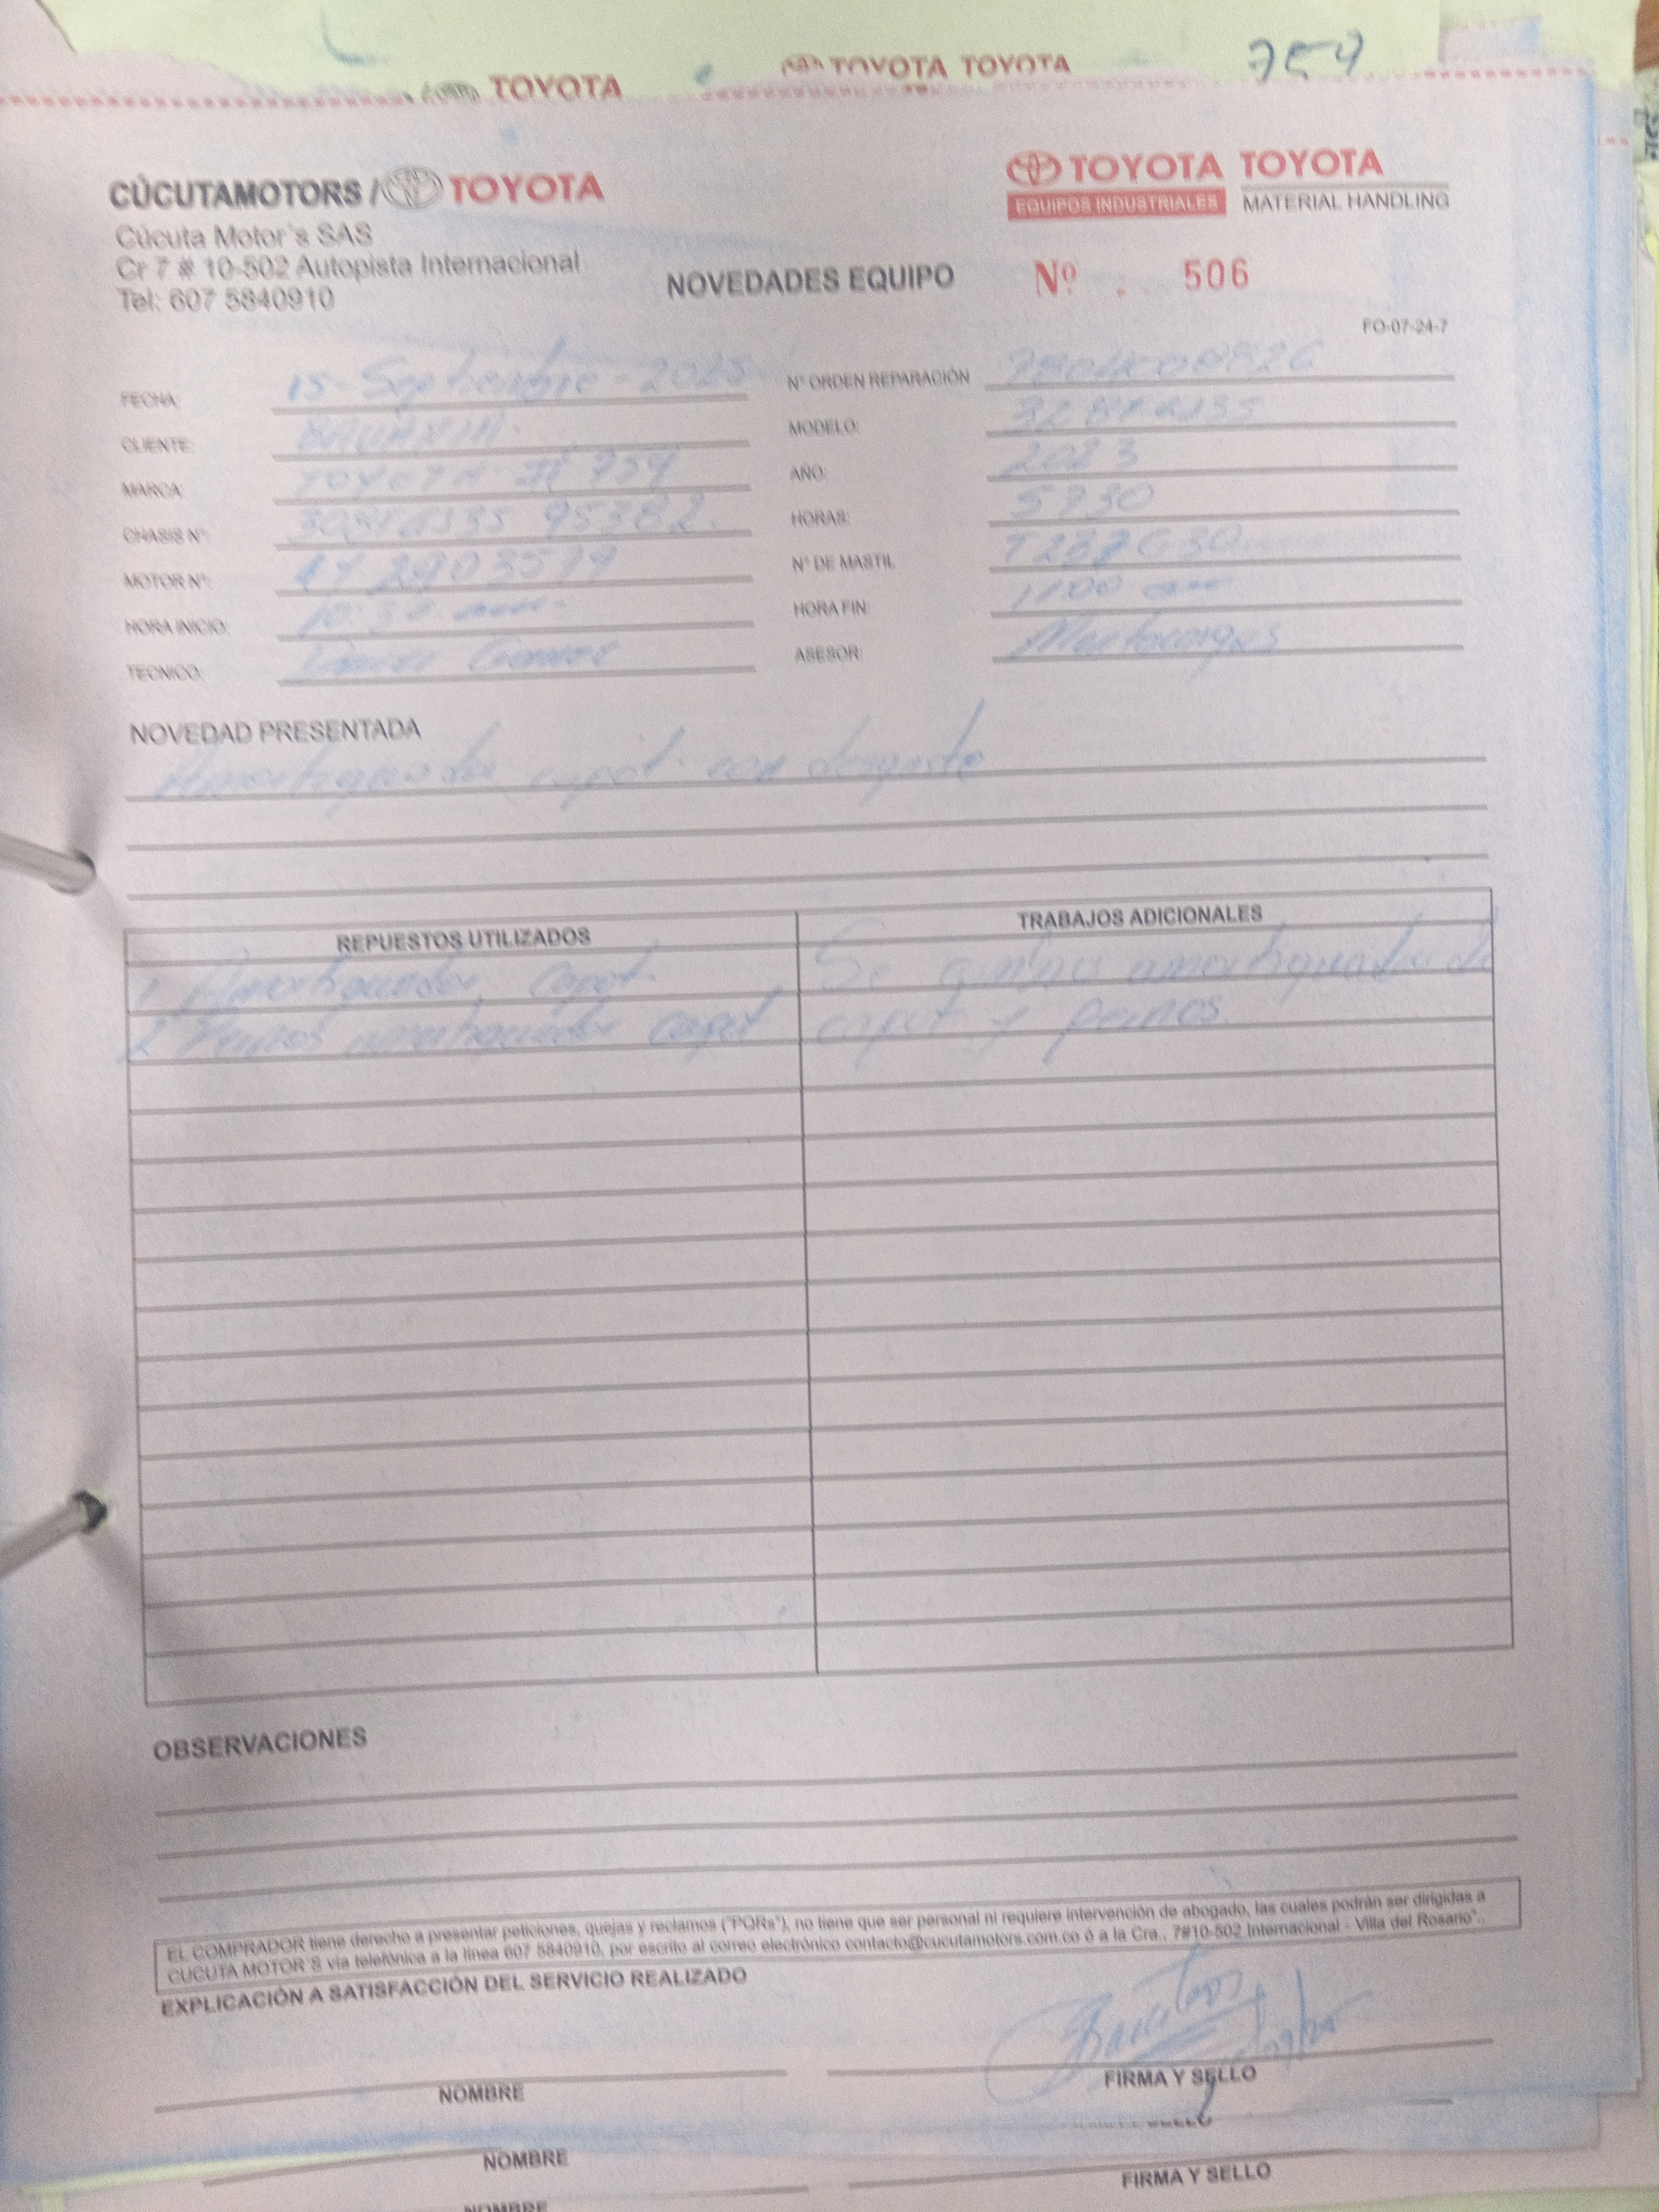 759
TOYOTA
TOYOTA TOYOTA
CÚCUTAMOTORS / TOYOTA
TOYOTA TOYOTA
EQUIPOS INDUSTRIALES MATERIAL HANDLING
Cúcuta Motor's SAS
Cr 7 # 10-502 Autopista Internacional
Tel: 607 5840910
NOVEDADES EQUIPO
Nº. 506
FO-07-24-7
FECHA: 15-Septiembre-2025
N° ORDEN REPARACIÓN
CLIENTE: BAVARIA.
MODELO:
MARCA: TOYOTA # 759
AÑO: 2023
CHASIS N°: 95382.
HORAS: 5930
MOTOR N°:
N° DE MASTIL
HORA INICIO: 10:30 am.
HORA FIN: 11:00 am
TECNICO: Gomez
ASESOR: Montacargas
NOVEDAD PRESENTADA
Amortiguador capot con desgaste
REPUESTOS UTILIZADOS
1 Amortiguador capot.
2 Pernos amortiguador capot
TRABAJOS ADICIONALES
Se cambio amortiguador de
capot y pernos.
OBSERVACIONES
EL COMPRADOR tiene derecho a presentar peticiones, quejas y reclamos ("PQRs"), no tiene que ser personal ni requiere intervención de abogado, las cuales podrán ser dirigidas a
CUCUTA MOTOR'S vía telefónica a la línea 607 5840910, por escrito al correo electrónico contacto@cucutamotors.com.co ó a la Cra., 7#10-502 Internacional - Villa del Rosario".
EXPLICACIÓN A SATISFACCIÓN DEL SERVICIO REALIZADO
NOMBRE
FIRMA Y SELLO
NOMBRE
FIRMA Y SELLO
NOMBRE